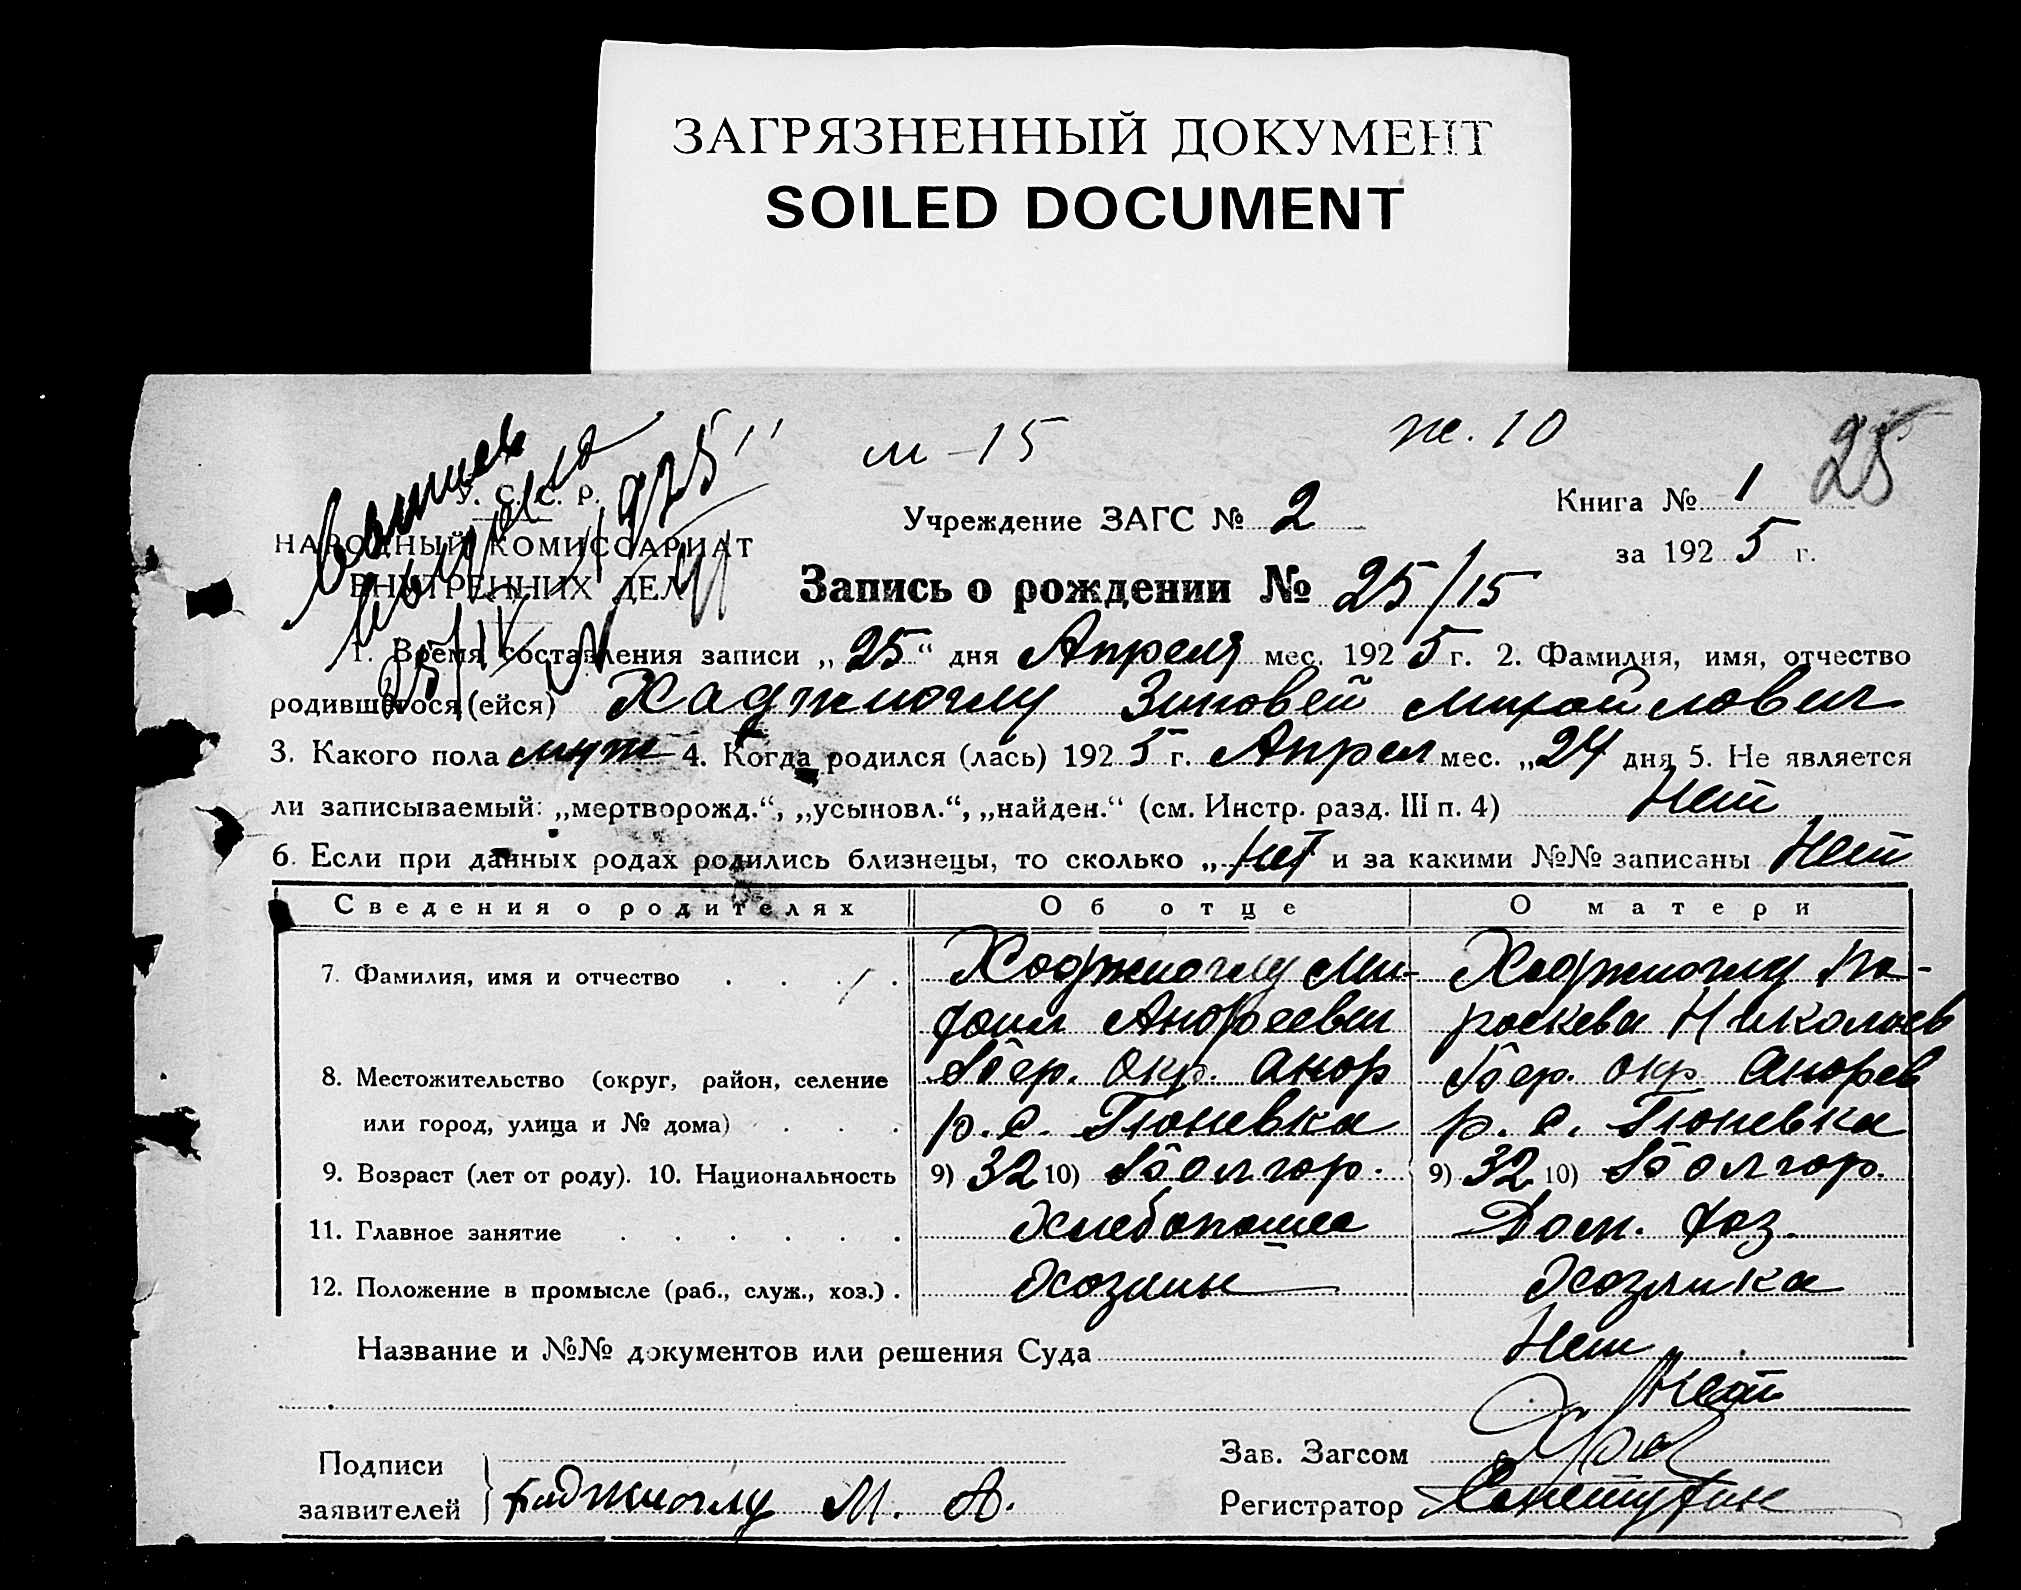 ЗАГРЯЗНЕННЫЙ ДОКУМЕНТ
SOILED DOCUMENT
м – 15
ж. 10
25
У. С. С. Р.
НАРОДНЫЙ КОМИССАРИАТ
ВНУТРЕННИХ ДЕЛ
Учреждение ЗАГС № 2
Книга № 1
за 1925 г.
Запись о рождении № 25/15
1. Время составления записи „25“ дня Апреля мес. 1925 г. 2. Фамилия, имя, отчество
родившегося (ейся) Хаджиоглу Зиновей Михайлович
3. Какого пола муж 4. Когда родился (лась) 1925 г. Апрел мес. „24 дня 5. Не является
ли записываемый: „мертворожд.“, „усыновл.“, „найден.“ (см. Инстр. разд. III п. 4) Нет
6. Если при данных родах родились близнецы, то сколько „Нет и за какими №№ записаны Нет
Сведения о родителях Об отце О матери
7. Фамилия, имя и отчество Хаджиоглу Ми- Хаджиоглу Па-
хаил Андреевич раскева Николаев
8. Местожительство (округ, район, селение Бер. окр. Андр Бер. окр Андрев
или город, улица и № дома) р. с. Гюневка р. с. Гюневка
9. Возраст (лет от роду). 10. Национальность 9) 32 10) Болгар. 9) 32 10) Болгар.
11. Главное занятие Хлебопашес Дом. хоз.
12. Положение в промысле (раб., служ., хоз.) Хозяин Хозяйка
Название и №№ документов или решения Суда Нет
Нет
Подписи
заявителей } Хаджиоглу М. А.
Зав. Загсом
Регистратор